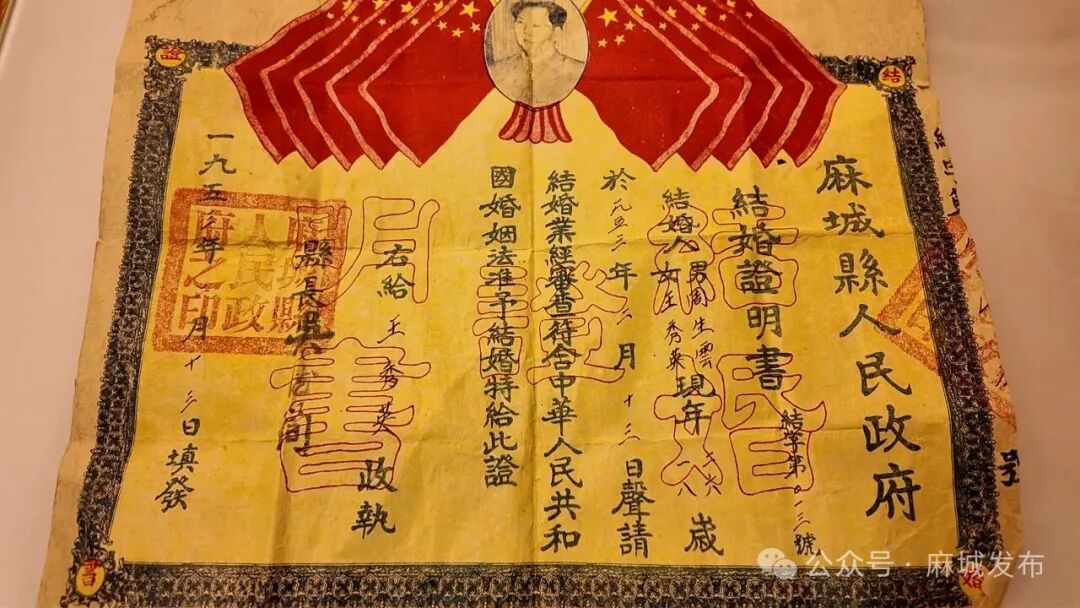 麻城縣人民政府
結婚證明書
結字第 三號
結婚人 男周生雲 女王秀英 現年 歲
於一九五三年二月十三日聲請
結婚業經審查符合中華人民共和
國婚姻法准予結婚特給此證
右給 王秀英 收執
縣長
一九五三年 月十三日填發
縣人民政府之印
結
證
書
公众号 · 麻城发布